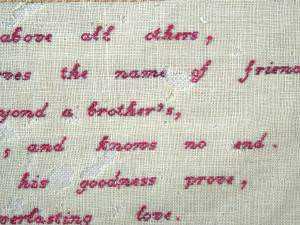 above all others,
ves the name of friend
yond a brother's,
, and knows no end.
his goodness prove,
verlasting love.